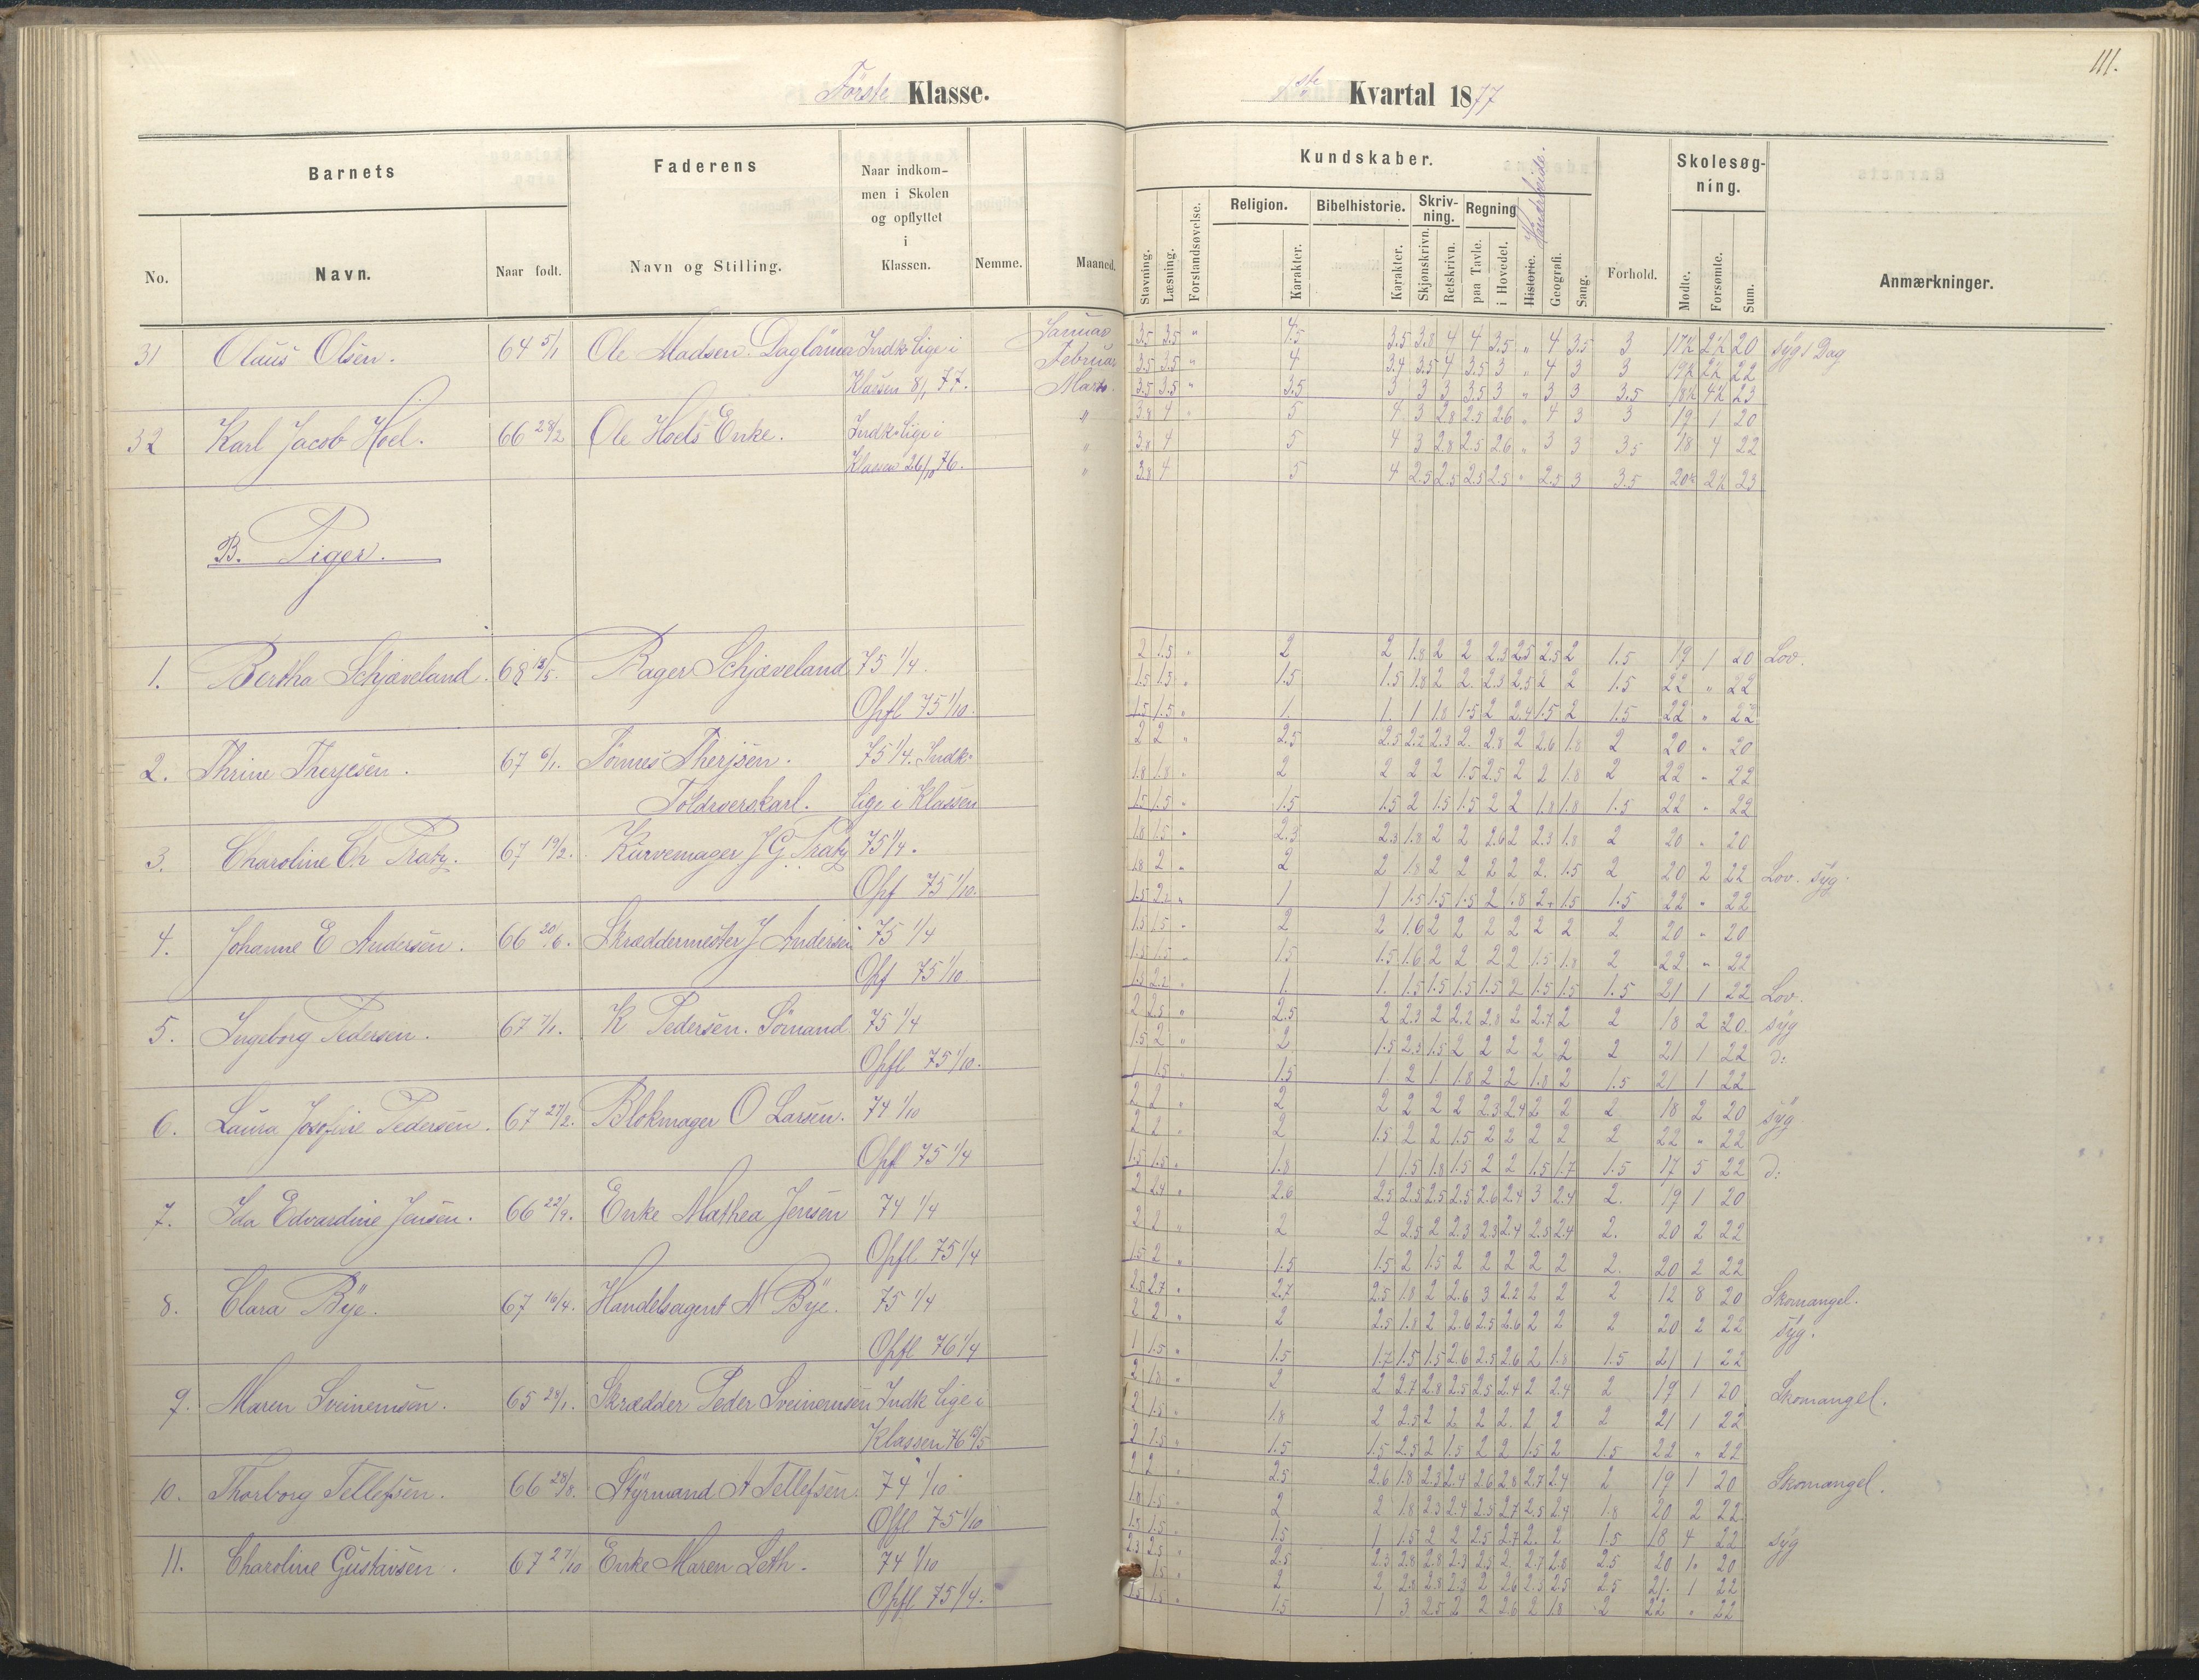 111.
Første Klasse.
1ste Kvartal 1877
Barnets
Faderens
Naar indkom-
men i Skolen
og opflyttet
i
Klassen.
Nemme.
Maaned.
No.
Navn.
Naar født.
Navn og Stilling.
Kundskaber.
Skolesøg-
ning.
Stavning.
Læsning.
Forstandsøvelse.
Religion.
Karakter.
Bibelhistorie.
Karakter.
Skriv-
ning.
Skjønskrivn.
Retskrivn.
Regning
paa Tavle.
i Hovedet.
Historie. Haandarbeide.
Geografi.
Sang.
Forhold.
Mødte.
Forsømte.
Sum.
Anmærkninger.
31 Olaus Olsen. 64 5/1 Ole Madsen. Indk lige i Januar 3.5 3.5 " 4.5 3.5 3.8 4 4 3.5 " 4 3.5 3 17½ 2½ 20 syg 1 Dag
Klassen 8/1 77. Februar 3.5 3.5 " 4 3.4 3.5 4 3.5 3 " 4 3 3 19½ 2½ 22
Marts. 3.5 3.5 " 3.5 3 3 3 3.5 3 " 3 3 3.5 18½ 4½ 23
32 Karl Jacob Hoel. 66 28/2 Ole Hoels Enke. Indk lige i " 3.8 4 " 5 4 3 2.8 2.5 2.6 " 4 3 3 19 1 20
Klassen 26/10 76. " 3.8 4 5 4 3 2.8 2.5 2.6 " 3 3 3.5 18 4 22
" 3.8 4 5 4 2.5 2.5 2.5 2.5 " 2.5 3 3.5 20½ 2½ 23
B. Piger.
1. Bertha Schjæveland. 68 18/5. Rager Schjæveland 75 1/4. 2 1.5 " 2 2 1.8 2 2 2.3 2.5 2.5 2 1.5 19 1 20 Lov.
1.5 1.5 " 1.5 1.5 1.8 2 2. 2.3 2.5 2 2 1.5 22 " 22
Opfl 75 1/10. 1.5 1.5 " 1. 1. 1 1.8 1.5 2 2.4 1.5 2 1.5 22 " 22
2. Thrine Therjesen. 67 6/1. Tønnes Therjsen. 75 1/4. Indk 2 2 " 2.5 2.5 2.2 2.3 2. 2.8 2 2.6 1.8 2 20 " 20
1.8 1.8 " 2 2 2 2 1.5 2.5 2 2 1.8 2 22 " 22
lige i Klassen 1.5 1.5 " 1.5 1.5 2 1.5 1.5 2 2 1.8 1.8 1.5 22 " 22
3. Charoline Ch Tratz. 67 19/2. Kurvemager J G. Tratz 75 1/4. 1.8 1.5 " 2.3 2.3 1.8 2 2 2.6 2 2.3 1.8 2 20 " 20
1.8 2 " 2 2 1.8 2 2 2 2 2. 1.5 2 20 2 22 Lov. syg.
Opf 75 1/10.
4. Johanne E Andersen. 66 20/6. Skræddermester J Andersen 75 1/4 1.5 1.5 " 2 2 1.6 2 2 2 2 2 2 2 20 " 20
1.5 1.5 " 1.5 1.5 1.6 2 2 2 2 1.5 1.8 2 22 " 22
Opf 75 1/10 1.5 2.2 " 1. 1. 1.5 1.5 1.5 1.5 2 1.5 1.5 1.5 21 1 22 Lov.
5. Ingeborg Pedersen. 67 7/1. K Pedersen. Sømand 75 1/4 2 2.5 " 2.5 2 2.3 2 2.2 2.8 2 2.7 2 2 18 2 20. syg
1.5 2 " 2 1.5 2.3 1.5 2 2 2 2 2 2 21 1 22 d:
Opfl 75 1/10. 1 1.5 " 1.5 1. 2 1. 1.8 2 2 1.8 2 1.5 21 1 22
6. Laura Josefine Pedersen. 67 27/2. Blokmager O Larsen. 74 1/10 2 2 " 2 2 2 2 2 2.3 2.4 2 2 2 18 2 20 syg
2 2 " 2 1.5 2 2 1.5 2 2 2 2 2 22 " 22
Opfl 75 1/4 1.5 1.5 " 1.8 1 1.5 1.8 1.5 2 2 1.5 1.7 1.5 17 5 22 d:
7. Ida Edvardine Jensen. 66 22/9. Enke Mathea Jensen 74 1/4 2 2.4 " 2.6 2.5 2.5 2.5 2.5 2.6 2.4 3 2.4 2. 19 1 20
2 2 " 2 2 2.5 2 2.3 2.3 2.4 2.3 2.4 2. 20 2 22
Opfl. 75 1/4 1.5 2 " 1.5 1.5 2 1.5 2 2 2 2 2 2. 20 2 22
8. Clara Bye. 67 16/4. Handelsagent N Bye. 75 1/4 2.5 2.7 " 2.7 2.5 1.8 2 2.6 3 2.2 2 2 2 12 8 20 Skomangel.
2 2 " 2 2.5 1.8 2 2.6 2.5 2.6 2 2 2 20 2 22 syg.
Opfl 76 1/4 1 1.5 " 1.5 1.7 1.5 1.5 2.6 2.5 2.6 2 1.8 1.5 21 1 22
9. Maren Sveinemsen. 65 28/1. Skrædder Peder Sveinemsen Indk lige i 2 1.8 " 2 2 2.7 2.8 2.5 2.5 2.4 2 2.4 2 19 1 20 Skomangel.
2 1.5 " 1.8 2 2.5 2 2. 2 2. 2 2 2 21 1 22
2 1.5 " 1.5 1.5 2.5 2 1.5 2 2 1.5 2 1.5 22 " 22
10. Thorborg Tellefsen. 66 28/8. Styrmand A Tellefsen. 74 1/10 2 2 " 2.5 2.6 1.8 2.3 2.4 2.6 2.8 2.7 2.4 2 19 1 20 Skomangel.
1.8 1.5 " 2 2 1.8 2.3 2.4 2.5 2.7 2.5 2.4 1.8 20 2 22.
Opfl 75 1/10 1.5 1.5 " 1.5 1 1.5 2 2 2.5 2.7 2. 2 1.5 18 4 22 syg
11. Charoline Gustavsen. 67 27/10 Enke Maren Leth. 74 1/10 2.3 2.5 " 2.5 2.3 2.8 2.8 2.3 2.5 2 2.7 2.8 2.5 20 1" 20
1.5 " 2 2 2.8 2.8 2.3 2 2.6 2.3 2.5 2.5 21. 1 22
Opfl 75 1/4. 1.5 1.5 " 1.5 1 3 2.5 2 2 2.6 2 1.8 2 22 " 22